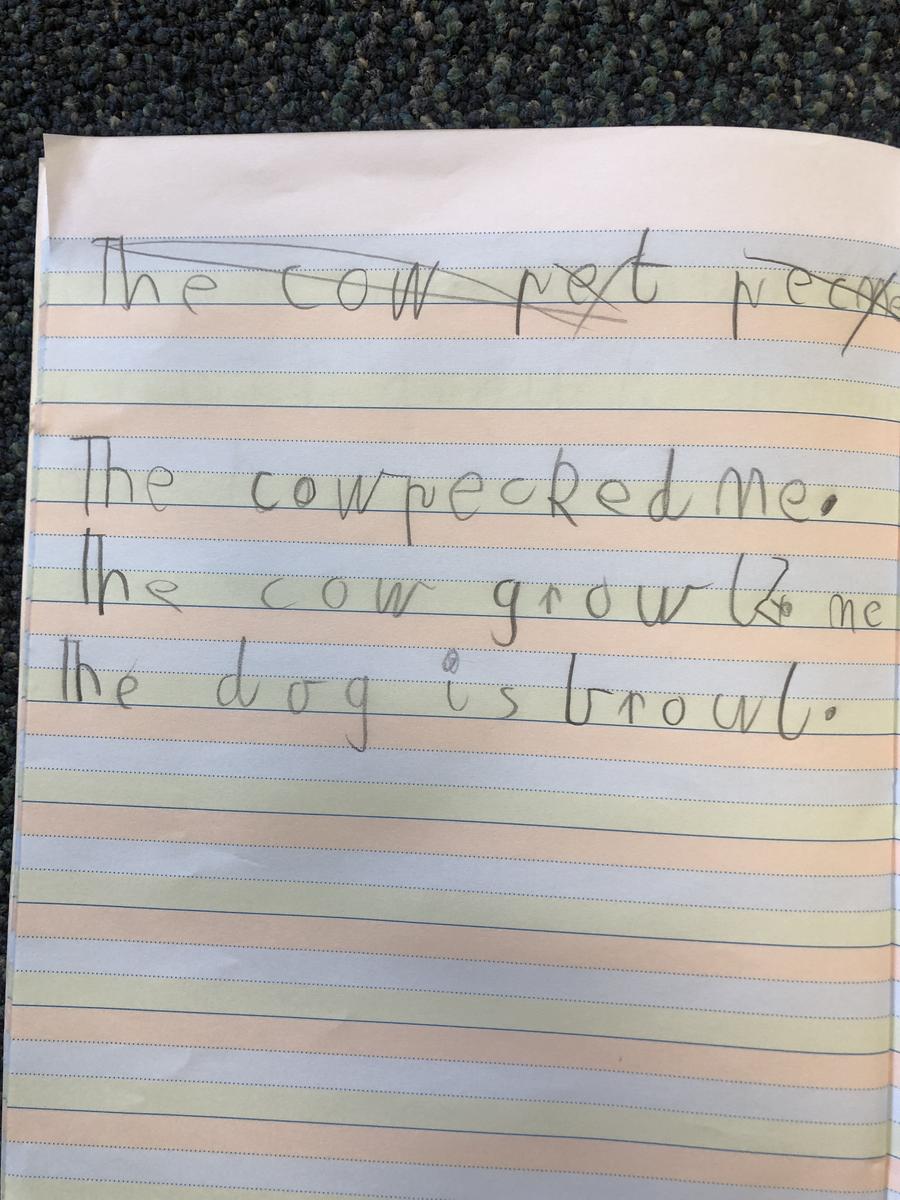 The cow pet
The cow pecked me.
The cow growl me
The dog is browl.